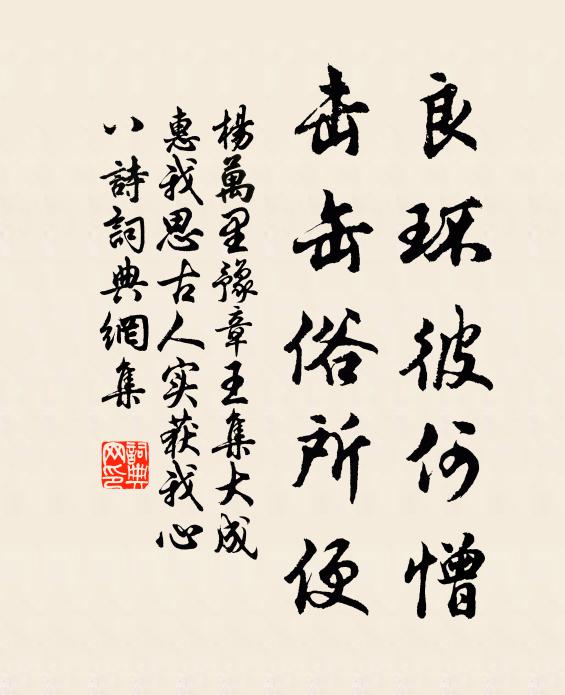 良球彼何憎
击缶俗所便
楊萬里豫章王集大成
惠我思古人实获我心
八詩詞典網集
詞典网印